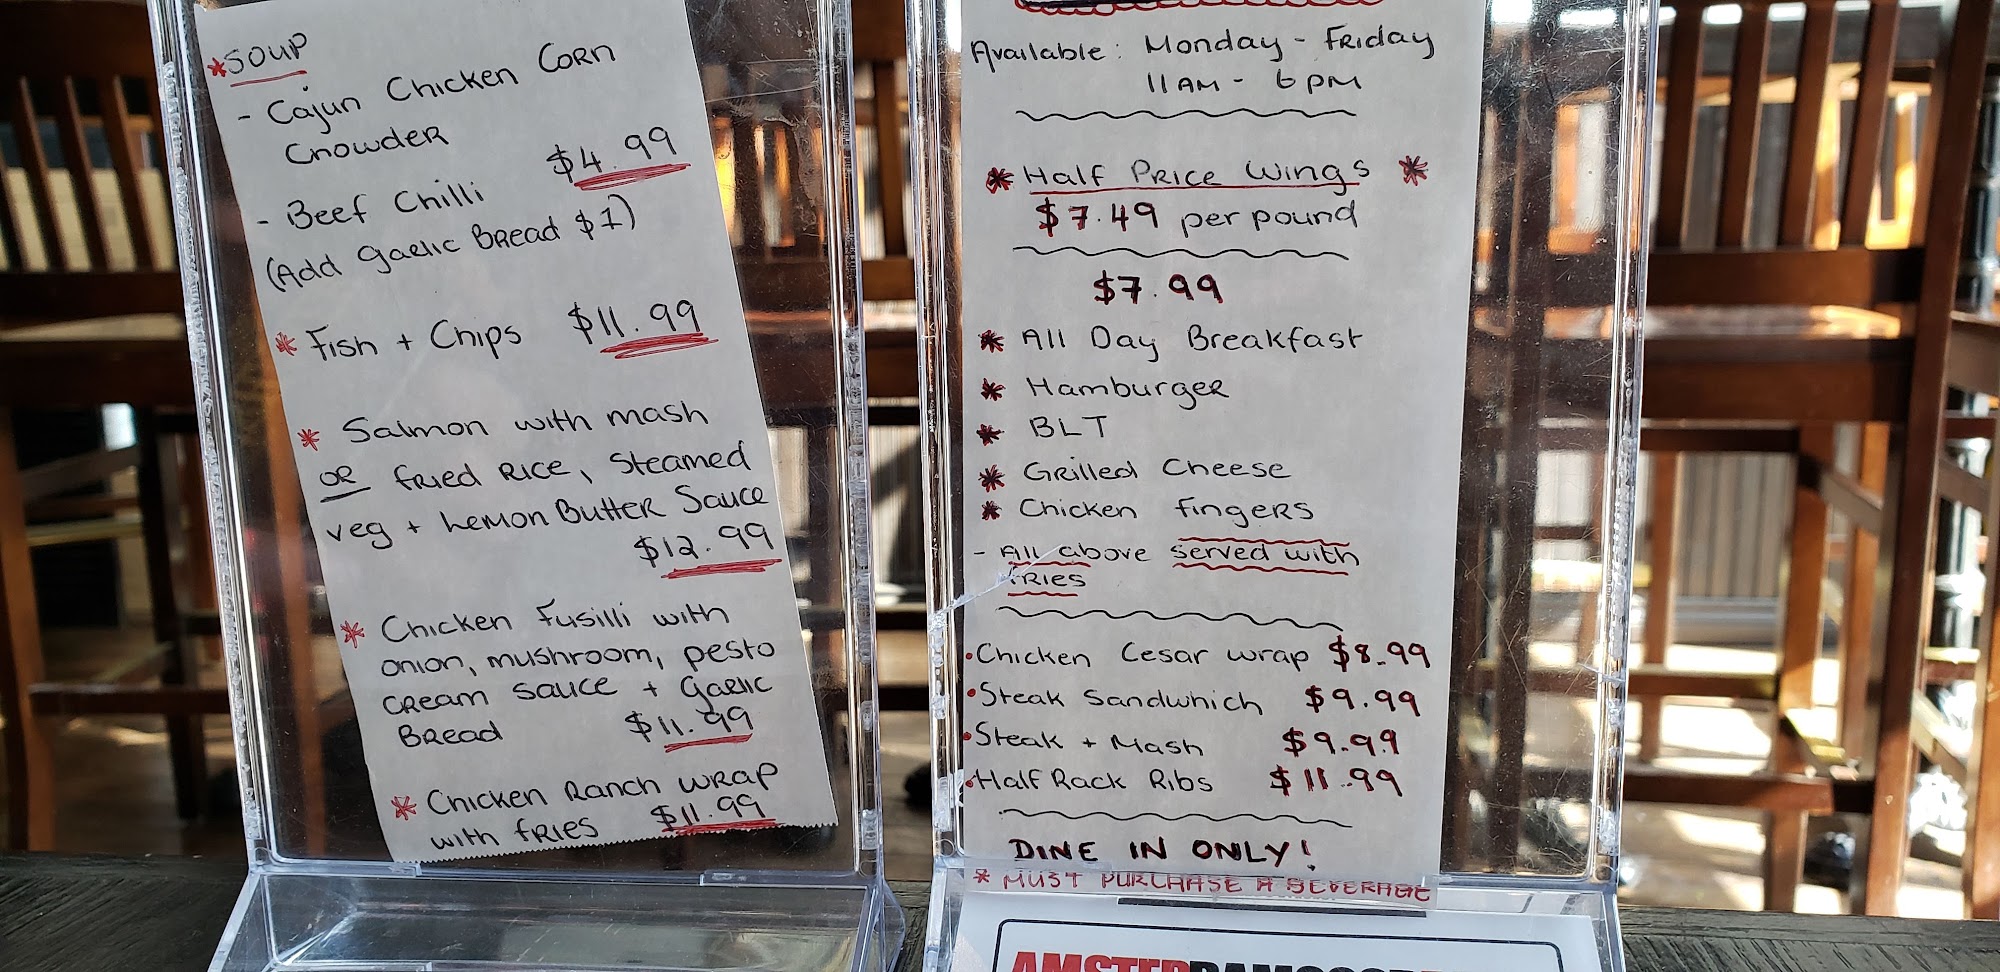 *SOUP
- Cajun Chicken Corn
Chowder
$4.99
- Beef Chilli
(Add Garlic Bread $1)
* Fish + Chips $11.99
* Salmon with mash
OR fried Rice, Steamed
veg + Lemon Butter Sauce
$12.99
* Chicken Fusilli with
onion, mushroom, pesto
cream sauce + Garlic
Bread $11.99
* Chicken Ranch wrap
with fries $11.99
Available: Monday - Friday
11AM - 6PM
* Half Price Wings *
$7.49 per pound
$7.99
* All Day Breakfast
* Hamburger
* BLT
* Grilled Cheese
* Chicken fingers
- All above served with
fries
•Chicken Cesar wrap $8.99
•Steak Sandwhich $9.99
•Steak + Mash $9.99
•Half Rack Ribs $11.99
DINE IN ONLY!
* MUST PURCHASE A BEVERAGE